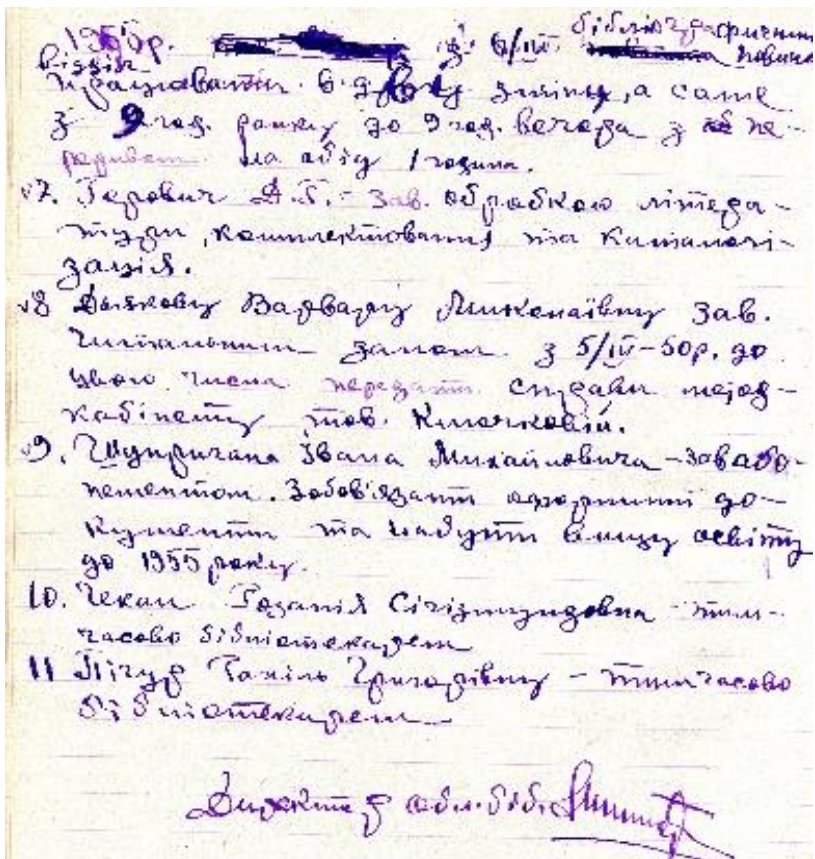 1955р. з 6/IV бібліографичний
відділ повина
працювати в другу зміну, а саме
з 9 год. ранку до 9 год. вечора з пе-
редивом на обід 1 година.
7. Герович Д.Г. - зав. обробкою літера-
тури, комплектования та каталогі-
зація.
8 Дьякову Варвару Миколаївну зав.
Читальним залом з 5/IV-50р. до
цього числа передати справи
кабінету тов. Клочковій.
9. Івана Михайловича - зав або-
нементом. Зобов'язати оформити до-
кументи та набути вищу освіту
до 1955 року.
10. Чекан Розалія Сігізмундовна - тим-
часово бібліотекарем
11 Пічур Григорівну - тимчасово
бібліотекарем
Директор обл. біб.